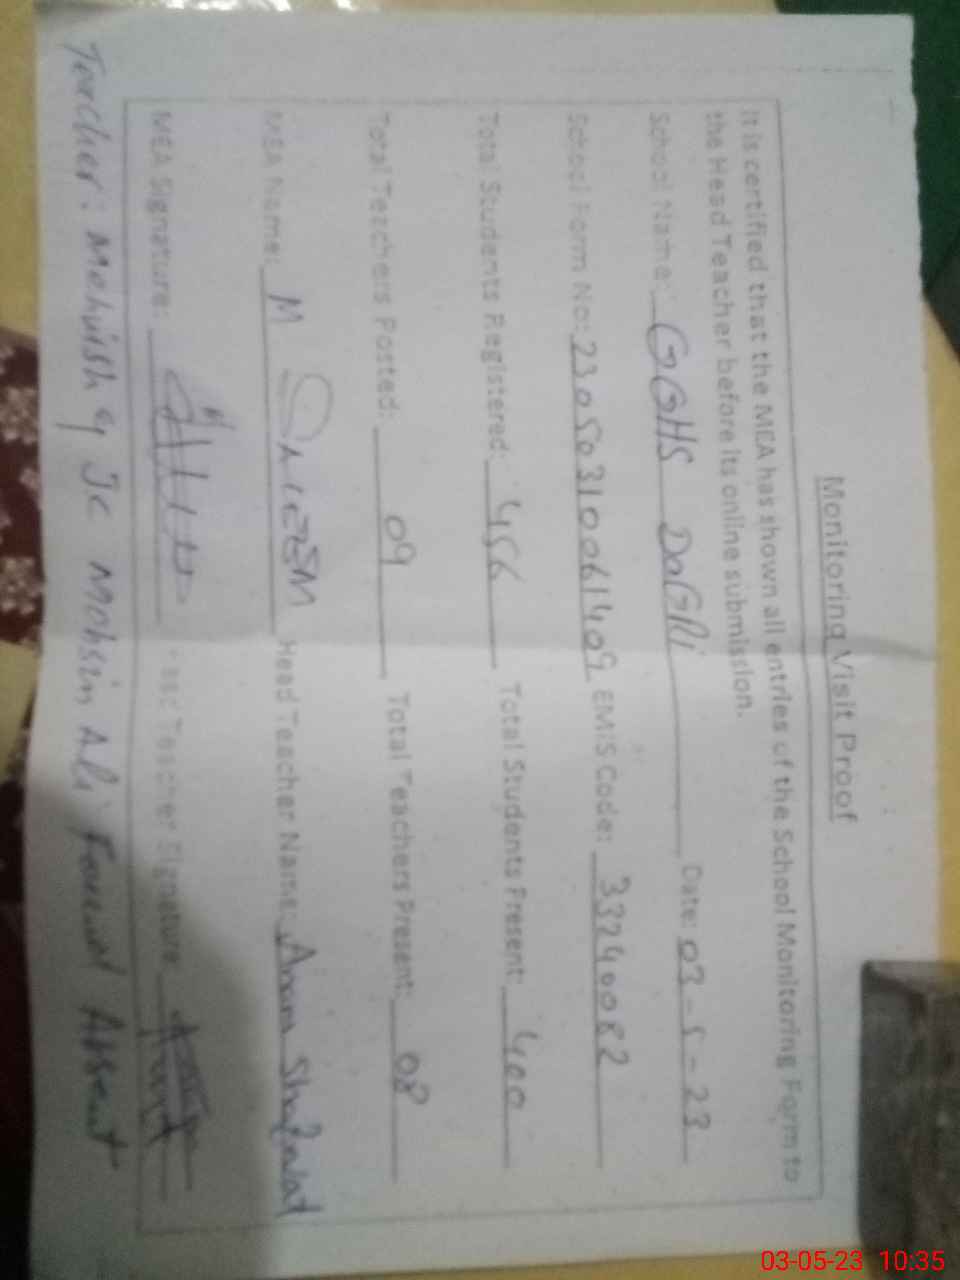 Monitoring Visit Proof
It is certified that the MEA has shown all entries of the School Monitoring Form to
the Head Teacher before its online submission.
School Name: GGHS DaGRi Date: 03-5-23
School Form No: 23050310061409 EMIS Code: 33240082
Total Students Registered: 456 Total Students Present: 400
Total Teachers Posted: 09 Total Teachers Present: 08
MEA Name: M SAleeM Head Teacher Name: Anam Shafaqat
MEA Signature: Teacher Signature
Teacher: Mehwish Mohsin Ali Found Absent
03-05-23 10:35